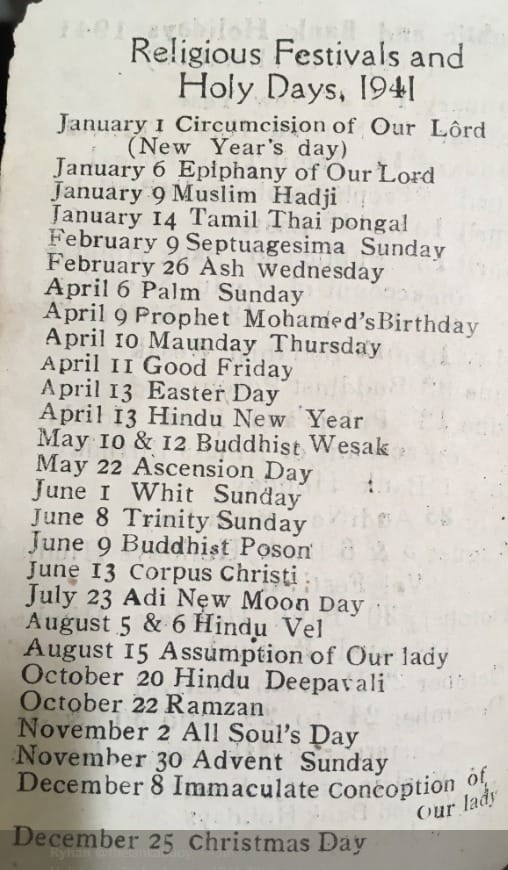 Religious Festivals and
Holy Days, 1941
January 1 Circumcision of Our Lôrd
(New Year's day)
January 6 Epiphany of Our Lord
January 9 Muslim Hadji
January 14 Tamil Thai pongal
February 9 Septuagesima Sunday
February 26 Ash Wednesday
April 6 Palm Sunday
April 9 Prophet Mohamed's Birthday
April 10 Maunday Thursday
April 11 Good Friday
April 13 Easter Day
April 13 Hindu New Year
May 10 & 12 Buddhist Wesak
May 22 Ascension Day
June 1 Whit Sunday
June 8 Trinity Sunday
June 9 Buddhist Poson
June 13 Corpus Christi
July 23 Adi New Moon Day
August 5 & 6 Hindu Vel
August 15 Assumption of Our lady
October 20 Hindu Deepavali
October 22 Ramzan
November 2 All Soul's Day
November 30 Advent Sunday
December 8 Immaculate Conception of
Our lady
December 25 Christmas Day